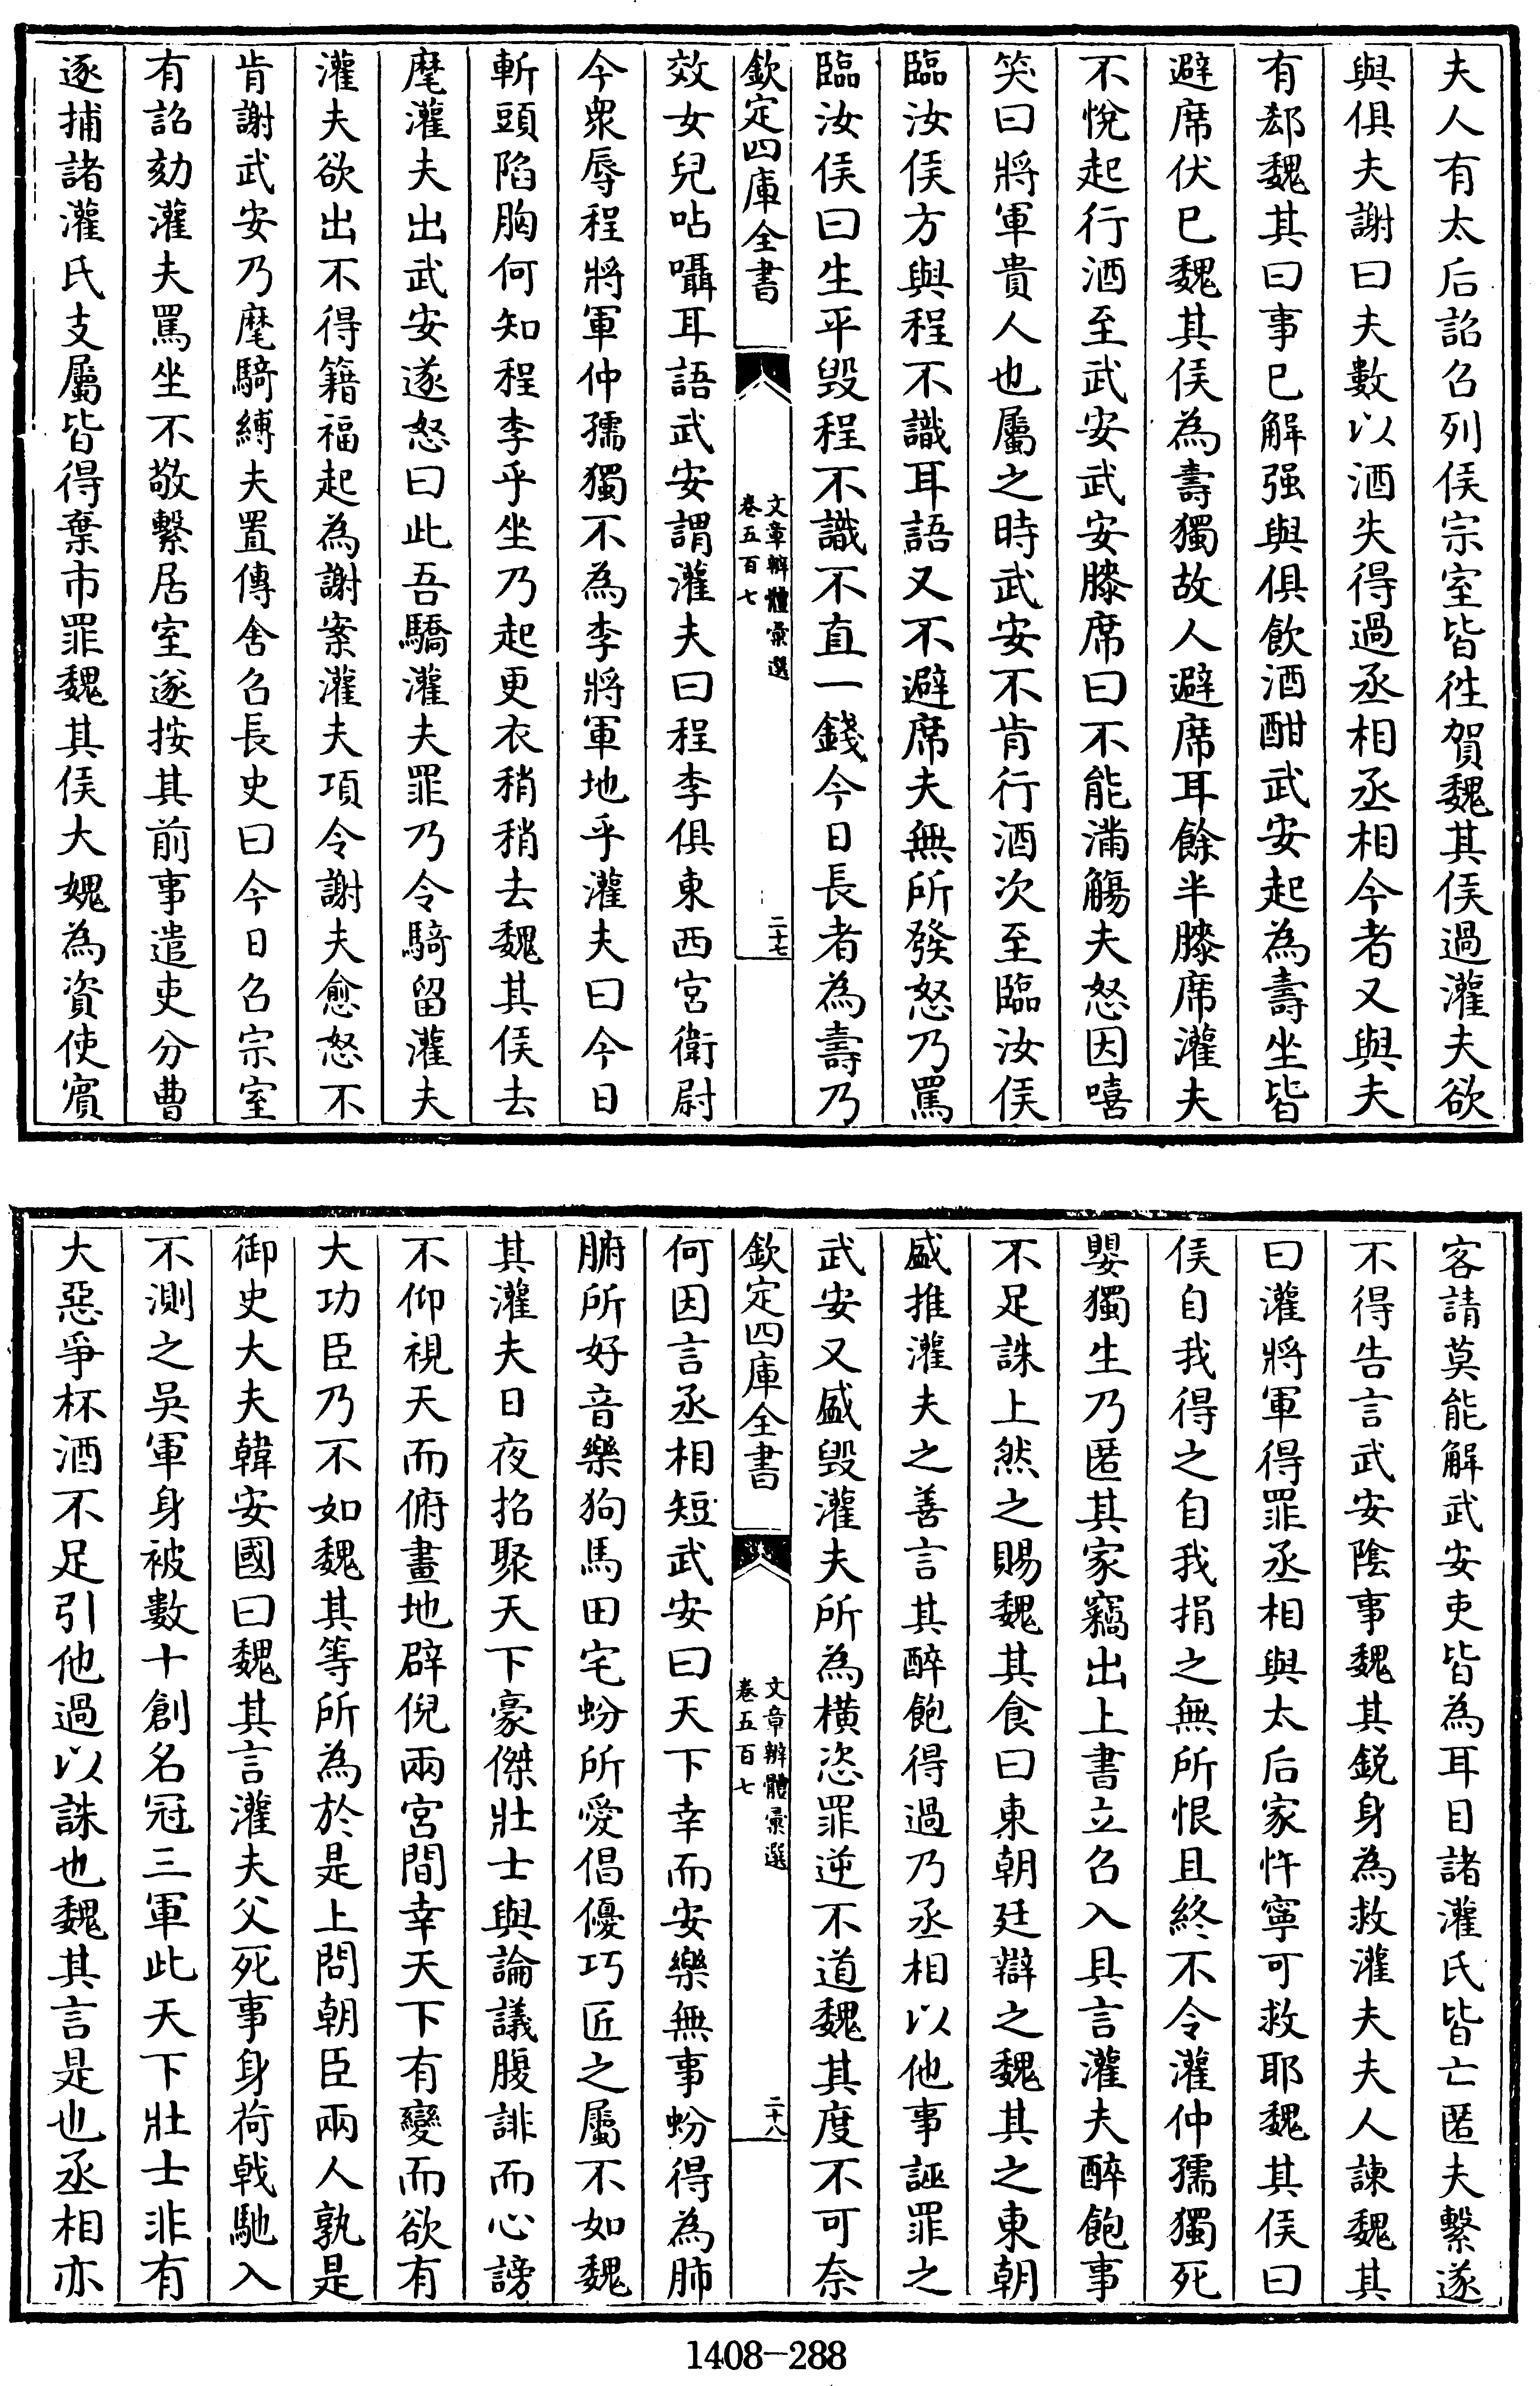 夫人有太后詔召列侯宗室皆徃賀魏其侯過灌夫欲
與俱夫謝曰夫數以酒失得過丞相丞相今者又與夫
有郄魏其曰事已解强與俱飲酒酣武安起為壽坐皆
避席伏已魏其侯為壽獨故人避席耳餘半膝席灌夫
不悅起行酒至武安武安膝席曰不能滿觴夫怒因嘻
笑曰將軍貴人也屬之時武安不肯行酒次至臨汝侯
臨汝侯方與程不識耳語又不避席夫無所發怒乃罵
臨汝侯曰生平毀程不識不直一錢今日長者為壽乃
欽定四庫全書
文章辨體彙選
卷五百七
二十七
效女兒呫囁耳語武安謂灌夫曰程李俱東西宮衛尉
今衆辱程將軍仲孺獨不為李將軍地乎灌夫曰今日
斬頭陷胸何知程李乎坐乃起更衣稍稍去魏其侯去
麾灌夫出武安遂怒曰此吾驕灌夫罪乃令騎留灌夫
灌夫欲出不得籍福起為謝案灌夫項令謝夫愈怒不
肯謝武安乃麾騎縛夫置傳舍召長史曰今日召宗室
有詔劾灌夫罵坐不敬繫居室遂按其前事遣吏分曹
逐捕諸灌氏支屬皆得棄市罪魏其侯大媿為資使賓
客請莫能解武安吏皆為耳目諸灌氏皆亡匿夫繫遂
不得告言武安陰事魏其鋭身為救灌夫夫人諫魏其
曰灌將軍得罪丞相與太后家忤寧可救耶魏其侯曰
侯自我得之自我捐之無所恨且終不令灌仲孺獨死
嬰獨生乃匿其家竊出上書立召入具言灌夫醉飽事
不足誅上然之賜魏其食曰東朝廷辯之魏其之東朝
盛推灌夫之善言其醉飽得過乃丞相以他事誣罪之
武安又盛毀灌夫所為橫恣罪逆不道魏其度不可奈
欽定四庫全書
文章辨體彙選
卷五百七
二十八
何因言丞相短武安曰天下幸而安樂無事蚡得為肺
腑所好音樂狗馬田宅蚡所愛倡優巧匠之屬不如魏
其灌夫日夜招聚天下豪傑壯士與論議腹誹而心謗
不仰視天而俯畫地辟倪兩宮間幸天下有變而欲有
大功臣乃不如魏其等所為於是上問朝臣兩人孰是
御史大夫韓安國曰魏其言灌夫父死事身荷戟馳入
不測之吳軍身被數十創名冠三軍此天下壯士非有
大惡爭杯酒不足引他過以誅也魏其言是也丞相亦
1408-288